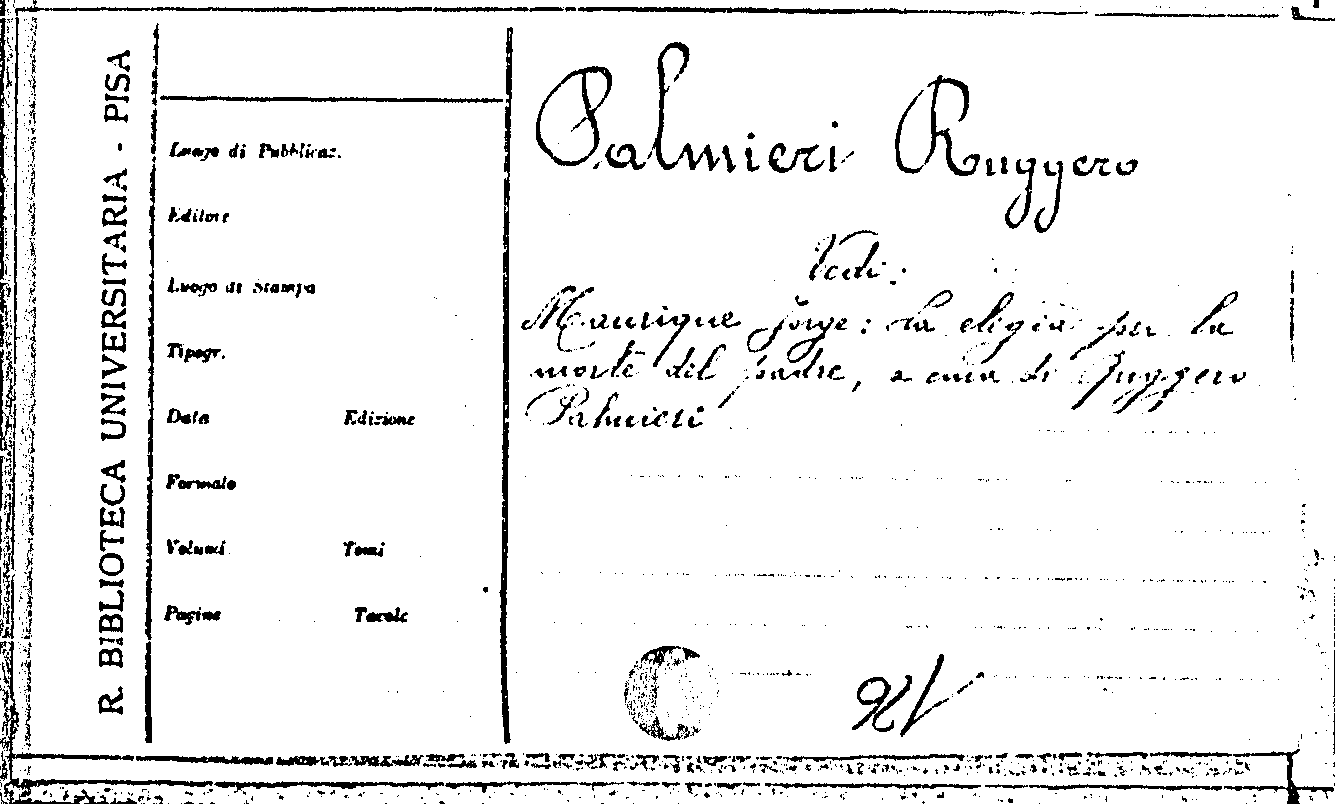 R. BIBLIOTECA UNIVERSITARIA - PISA
Luogo di Pubblicaz.
Editore
Luogo di Stampa
Tipogr.
Data Edizione
Formato
Volumi Tomi
Pagine Tavole
Palmieri Ruggero
Vedi:
Manrique Jorge: La elegia per la
morte del padre, a cura di Ruggero
Palmieri